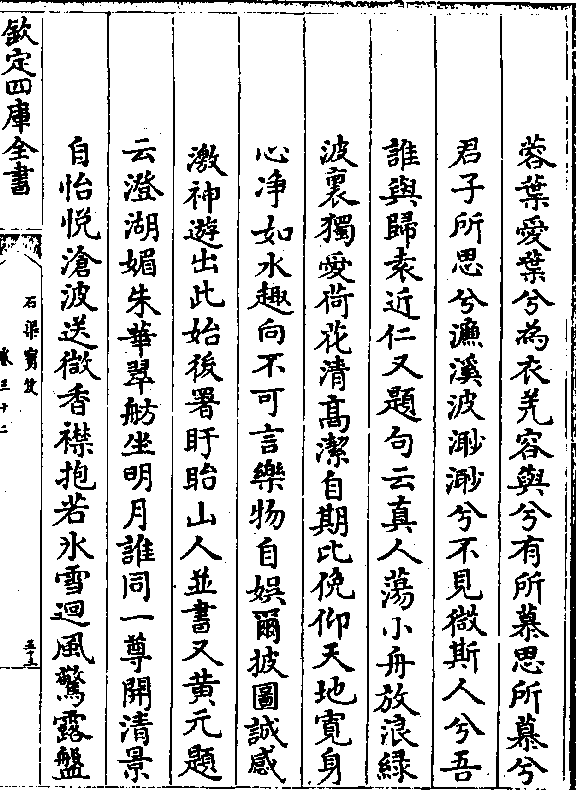 蓉葉愛葉兮為衣羌容與兮有所慕思所慕兮
君子所思兮濂溪波渺渺兮不見微斯人兮吾
誰與歸袁近仁又題句云真人蕩小舟放浪緑
波裏獨愛荷花清髙潔自期比俛仰天地寛身
心净如水趣向不可言樂物自娯爾披圖誠感
激神遊出此始後署盱眙山人並書又黄元題
云澄湖媚朱華翠舫坐明月誰同一尊開清景
自怡悦滄波送微香襟抱若氷雪迴風驚露盤
欽定四庫全書
石渠寳笈
卷三十二